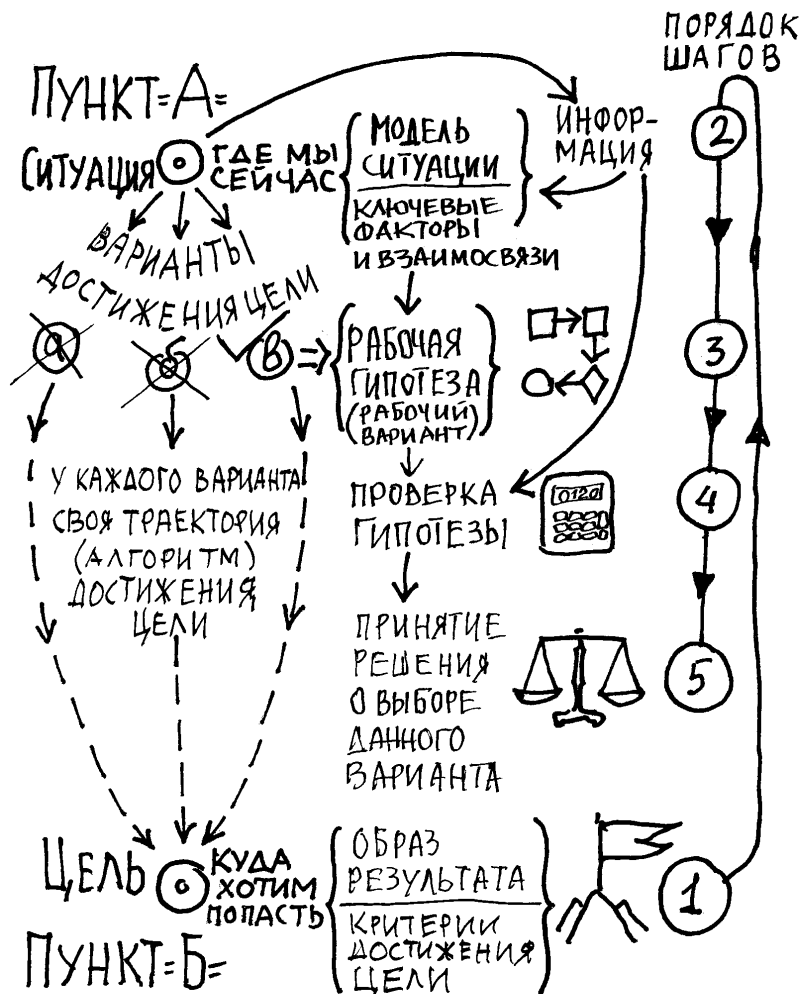 ПОРЯДОК
ШАГОВ
ПУНКТ=А=
СИТУАЦИЯ
ГДЕ МЫ
СЕЙЧАС
МОДЕЛЬ
СИТУАЦИИ
КЛЮЧЕВЫЕ
ФАКТОРЫ
И ВЗАИМОСВЯЗИ
ИНФОР-
МАЦИЯ
2
ВАРИАНТЫ
ДОСТИЖЕНИЯ ЦЕЛИ
а
б
в
РАБОЧАЯ
ГИПОТЕЗА
(РАБОЧИЙ)
ВАРИАНТ)
3
У КАЖДОГО ВАРИАНТА
СВОЯ ТРАЕКТОРИЯ
(АЛГОРИТМ)
ДОСТИЖЕНИЯ
ЦЕЛИ
ПРОВЕРКА
ГИПОТЕЗЫ
0120
4
ПРИНЯТИЕ
РЕШЕНИЯ
О ВЫБОРЕ
ДАННОГО
ВАРИАНТА
5
ЦЕЛЬ
КУДА
ХОТИМ
ПОПАСТЬ
ОБРАЗ
РЕЗУЛЬТАТА
КРИТЕРИИ
ДОСТИЖЕНИЯ
ЦЕЛИ
1
ПУНКТ=Б=